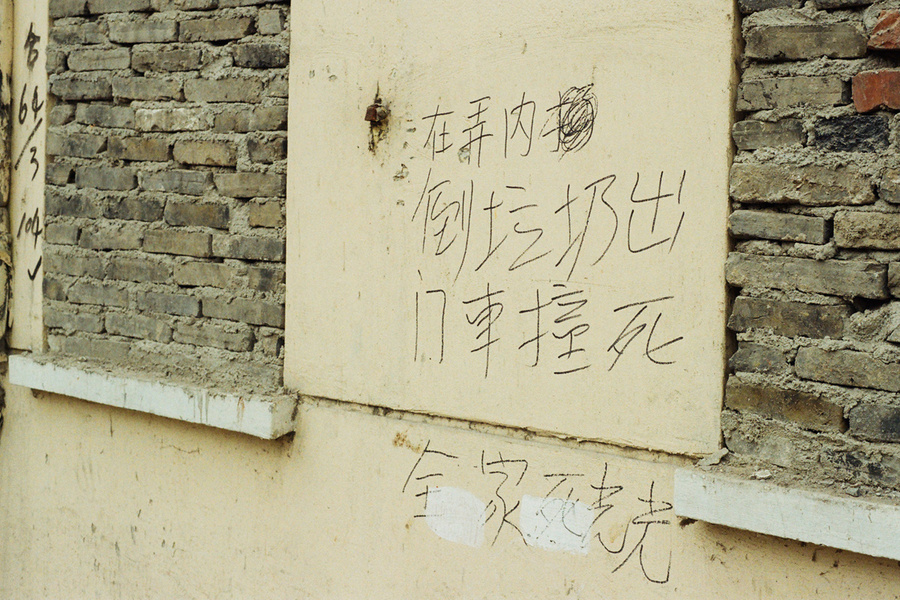 合
64/3
104
在弄内
倒垃圾出
门车撞死
全家死光光